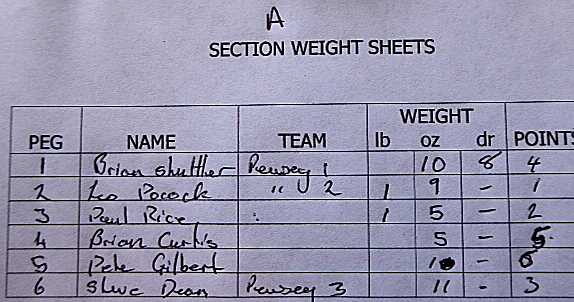 A
SECTION WEIGHT SHEETS
WEIGHT
PEG NAME TEAM lb oz dr POINTS
1 Brian Shuttler Pewsey 1 10 8 4
2 Leo Pocock " 2 1 9 - 1
3 Paul Rice 1 5 - 2
4 Brian Curtis 5 - 5
5 Pete Gilbert -
6 Steve Dean Pewsey 3 11 - 3